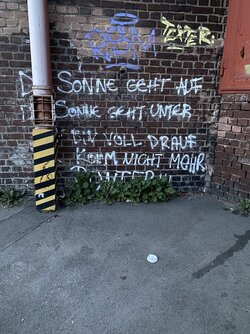 TEXTER
SONNE GEHT AUF
SONNE GEHT UNTER
BIN VOLL DRAUF
KOMM NICHT MEHR
RUNTER